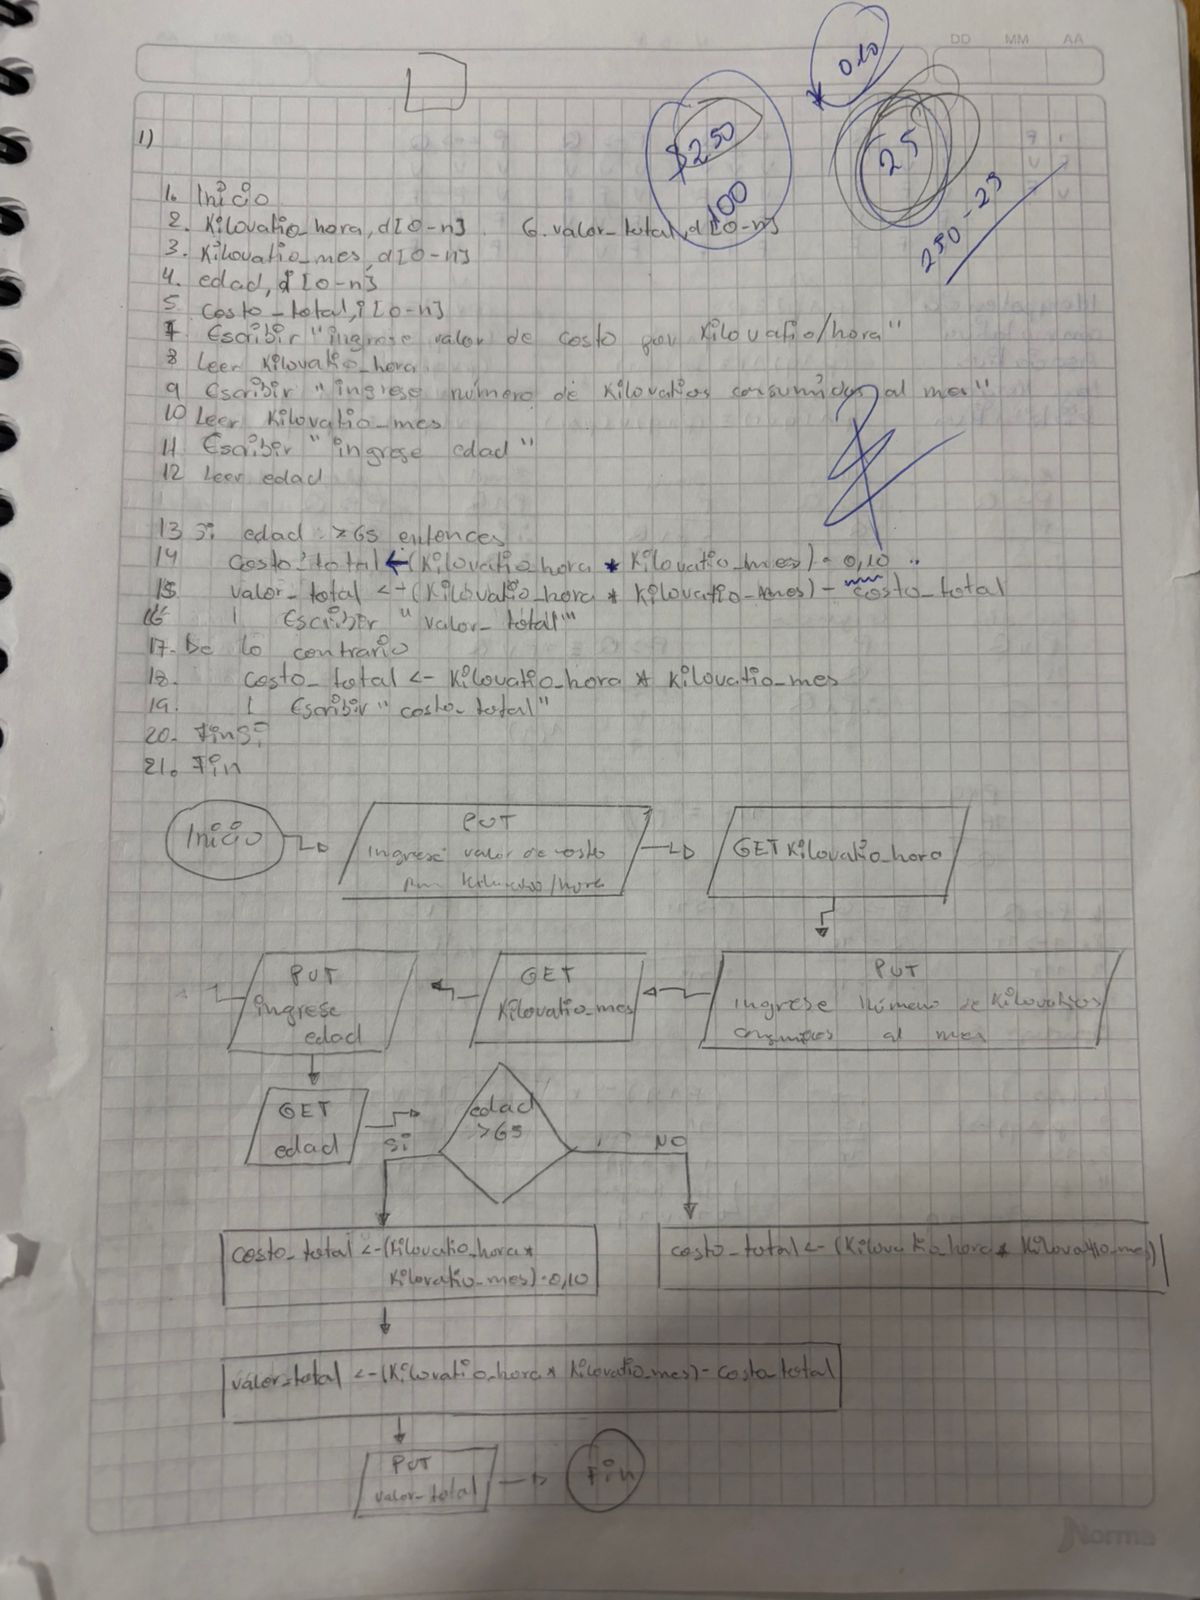 DD MM AA
* 0.10
$250
100
25
250-25
1)
1. Inicio
2. Kilovatio_hora, d[0-n]. 6. valor_total, d[0-n]
3. Kilovatio_mes, d[0-n]
4. edad, i [0-n]
5. costo_total, i [0-n]
7. Escribir "ingrese valor de costo por Kilovatio/hora"
8 Leer Kilovatio_hora
9 Escribir "ingrese número de Kilovatios consumidos al mes"
10 Leer Kilovatio_mes
11 Escribir "ingrese edad"
12 Leer edad
13 si edad >65 entonces
14 costo_total <-(Kilovatio_hora * Kilovatio_mes) 0,10
15 valor_total <-(Kilovatio_hora * Kilovatio_mes) - costo_total
16 Escribir "valor_total"
17. De lo contrario
18. costo_total <- Kilovatio_hora * Kilovatio_mes
19. Escribir "costo_total"
20. Finsi
21. Fin
Inicio
PUT
ingrese valor de costo
por kilovatio/hora
GET Kilovatio_hora
PUT
ingrese número de Kilovatios
consumidos al mes
GET
Kilovatio_mes
PUT
ingrese
edad
GET
edad
edad
>65
Si
NO
costo_total <-(Kilovatio_hora *
Kilovatio_mes) 0,10
costo_total <- (Kilovatio_hora * Kilovatio_mes)
valor_total <-(Kilovatio_hora * Kilovatio_mes) - costo_total
PUT
valor_total
Fin
Norma